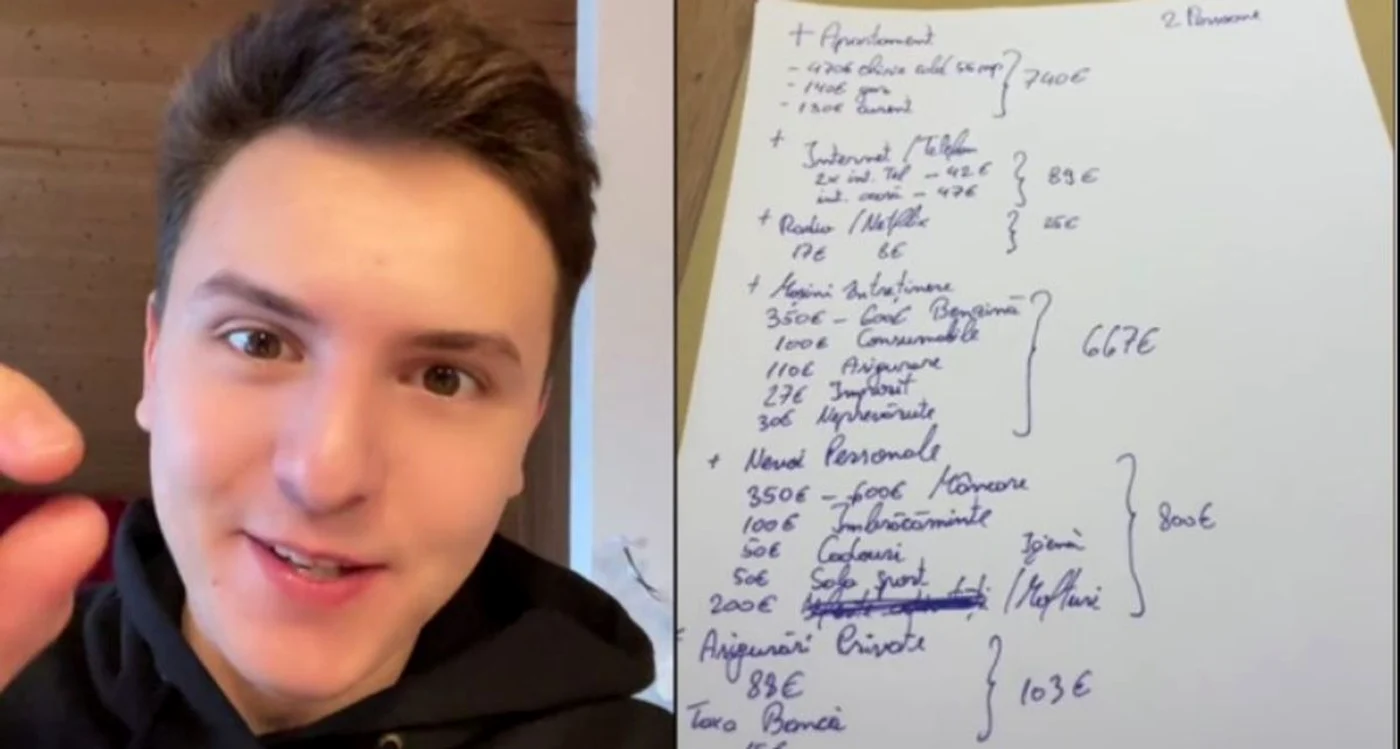 2 Persoane
+ Apartament
- 470€ chirie caldă 55 mp
- 140€ gaz
- 130€ curent
740€
+ Internet / Telefon
2x int. Tel - 42€
int. casă - 47€
89€
+ Radio / Netflix
17€ 8€
25€
+ Mașini Întreținere
350€ - 600€ Benzină
100€ Consumabile
110€ Asigurare
27€ Impozit
30€ Neprevăzute
667€
+ Nevoi Personale
350€ - 600€ Mâncare
100€ Îmbrăcăminte
50€ Cadouri
50€ Sala sport
200€ Igienă / Mofturi
800€
Asigurări Private
88€
103€
Taxa Bancă
15€